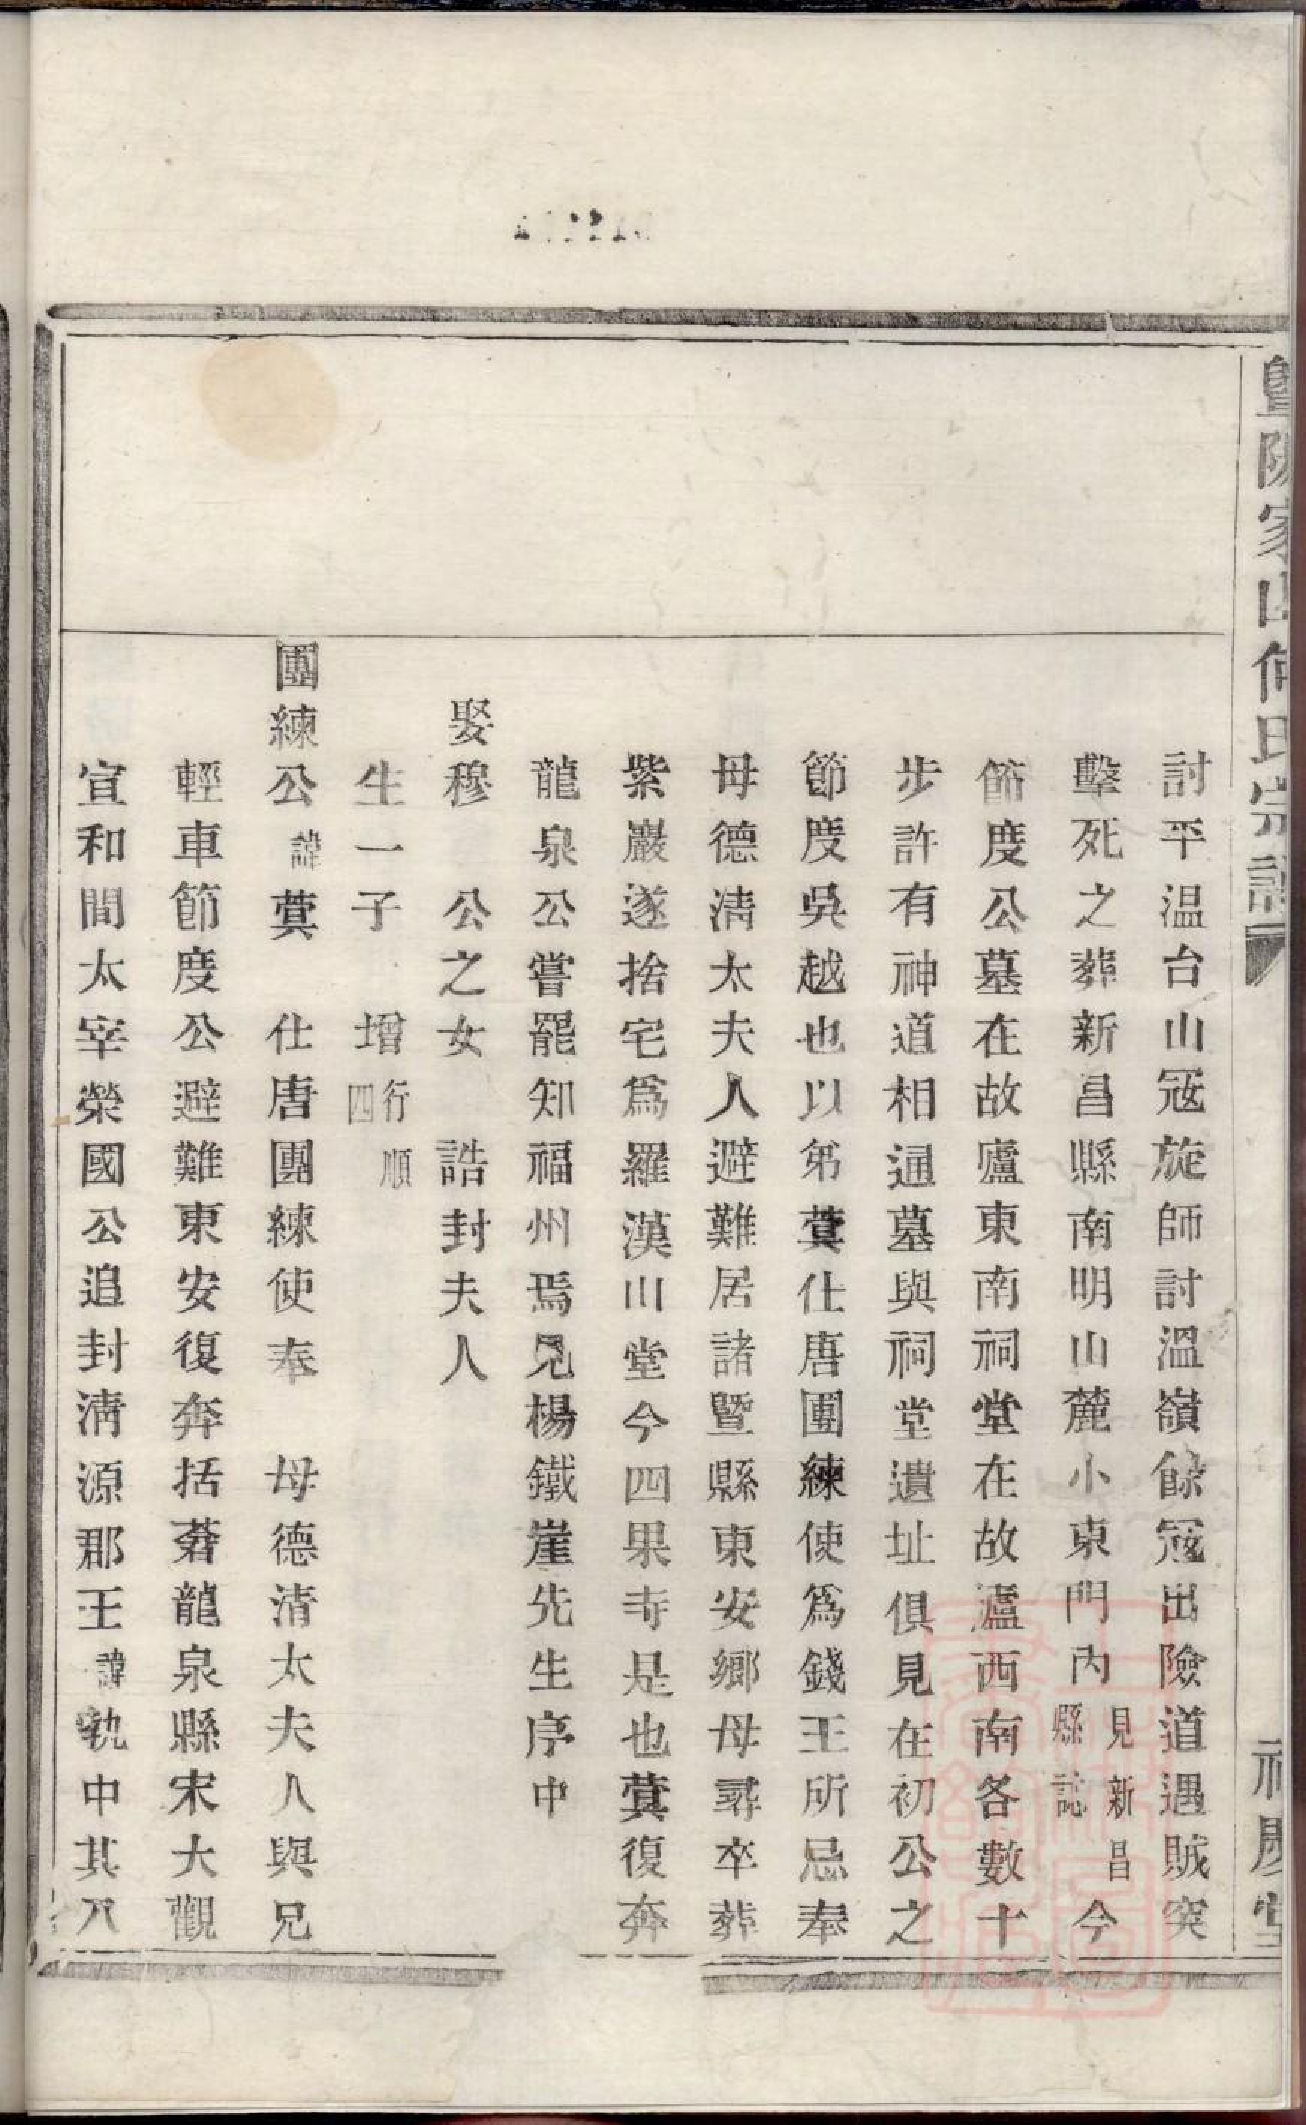 暨陽家山何氏宗譜
討平温台山冦旋師討溫嶺餘冦出險道遇賊突
擊死之葬新昌縣南明山麓小東門内見新昌縣誌今
節度公墓在故廬東南祠堂在故瀘西南各數十
步許有神道相通墓與祠堂遺址俱見在初公之
節度吳越也以弟蓂仕唐團練使爲錢王所忌奉
母德清太夫人避難居諸暨縣東安鄉母尋卒葬
紫巖遂捨宅爲羅漢山堂今四果寺是也蓂復奔
龍泉公嘗罷知福州焉見楊鐵崖先生序中
娶穆 公之女 誥封夫人
生一子 增行順四
團練公諱蓂 仕唐團練使奉 母德清太夫人與兄
輕車節度公避難東安復奔括蒼龍泉縣宋大觀
宣和間太宰榮國公追封清源郡王諱執中其八